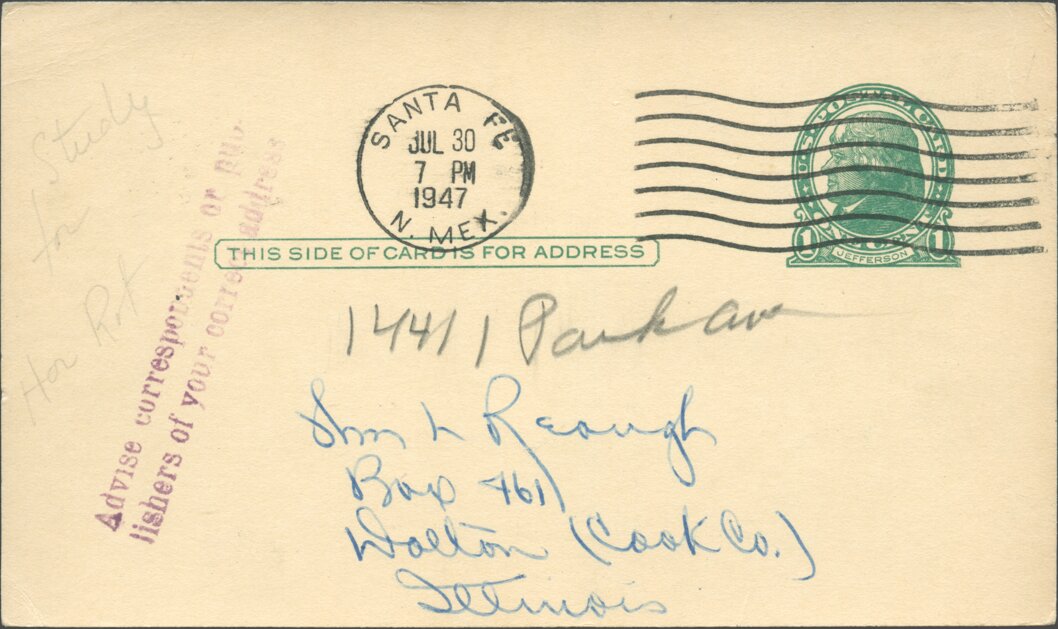 SANTA FE
JUL 30
7 PM
1947
N. MEX.
U.S. POSTAL CARD
1 1
JEFFERSON
THIS SIDE OF CARD IS FOR ADDRESS
Study
for
Hor Rot
Advise correspondents or pub-
lishers of your correct address
14411 Park av
Wm L Reough
Box 461
Dolton (Cook Co.)
Illinois